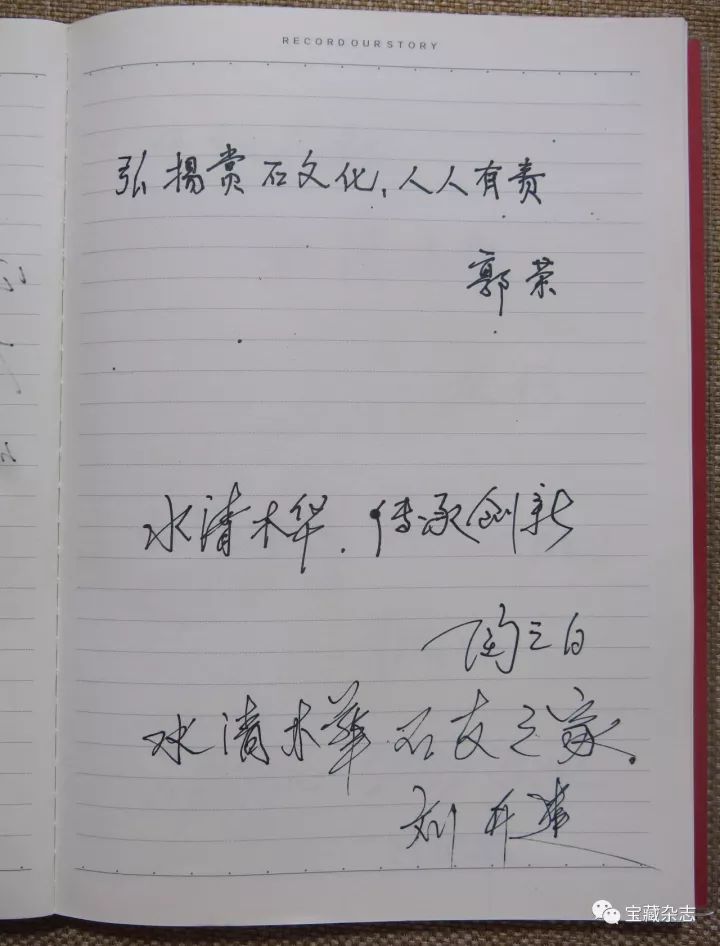 RECORD OUR STORY
弘揚赏石文化，人人有责
郭荣
水清木华．传承创新
陶三白
水清木華 石友之家.
刘
宝藏杂志